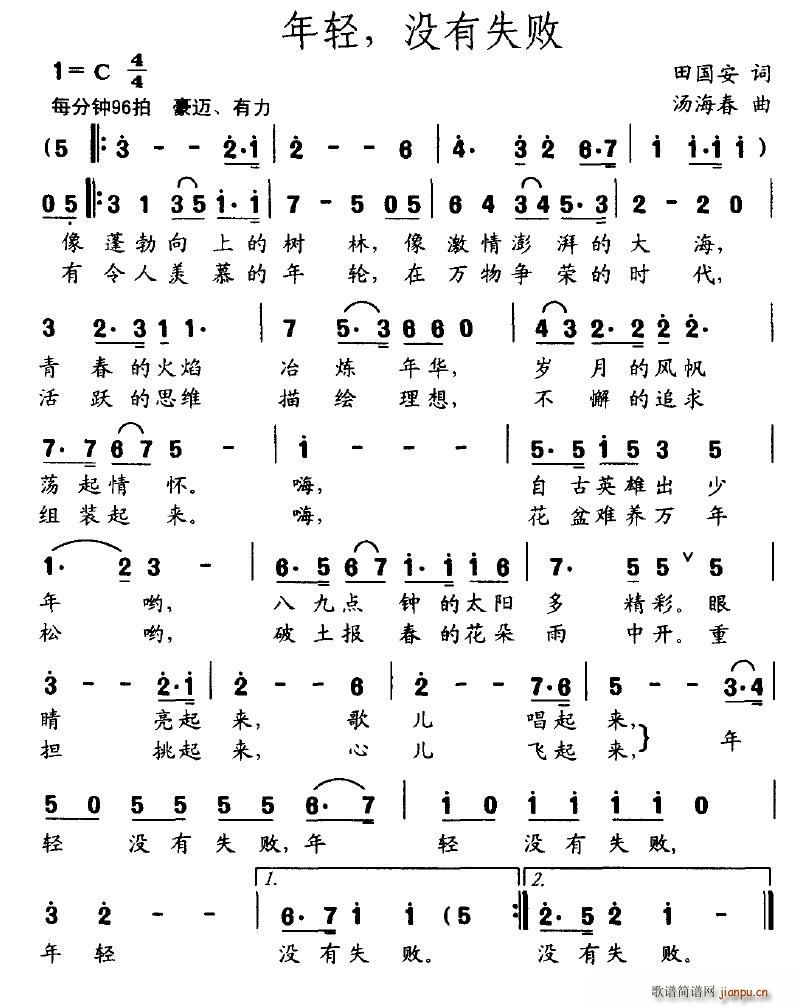 年轻，没有失败
1=C 4/4
田国安 词
每分钟96拍 豪迈、有力
汤海春 曲
(5 ‖: 3 - - 2·1 | 2 - - 6 | 4· 3 2 6·7 | 1 1·1 1 )
0 5 ‖: 3 1 3 5 1·1 | 7 - 5 0 5 | 6 4 3 4 5·3 | 2 - 2 0
像蓬勃向上的树林，像激情澎湃的大海，
有令人羡慕的年轮，在万物争荣的时代，
3 2·3 1 1· | 7 5·3 6 6 0 | 4 3 2·2 2 2·
青春的火焰 冶炼年华， 岁月的风帆
活跃的思维 描绘理想， 不懈的追求
7·7 6 7 5 - | 1 - - - | 5·5 1 5 3 5
荡起情怀。 嗨， 自古英雄出少
组装起来。 嗨， 花盆难养万年
1· 2 3 - | 6·5 6 7 1·1 1 6 | 7· 5 5 ∨ 5
年哟， 八九点钟的太阳多精彩。眼
松哟， 破土报春的花朵雨中开。重
3 - - 2·1 | 2 - - 6 | 2 - - 7·6 | 5 - - 3·4
睛亮起来， 歌儿唱起来， 年
担挑起来， 心儿飞起来，}
5 0 5 5 5 5 6· 7 | 1 0 1 1 1 1 0
轻 没有失败，年 轻 没有失败，
1. 2.
3 2 - - | 6·7 1 1 (5 :‖ 2·5 2 1 - ‖
年轻 没有失败。 没有失败。
歌谱简谱网
jianpu.cn